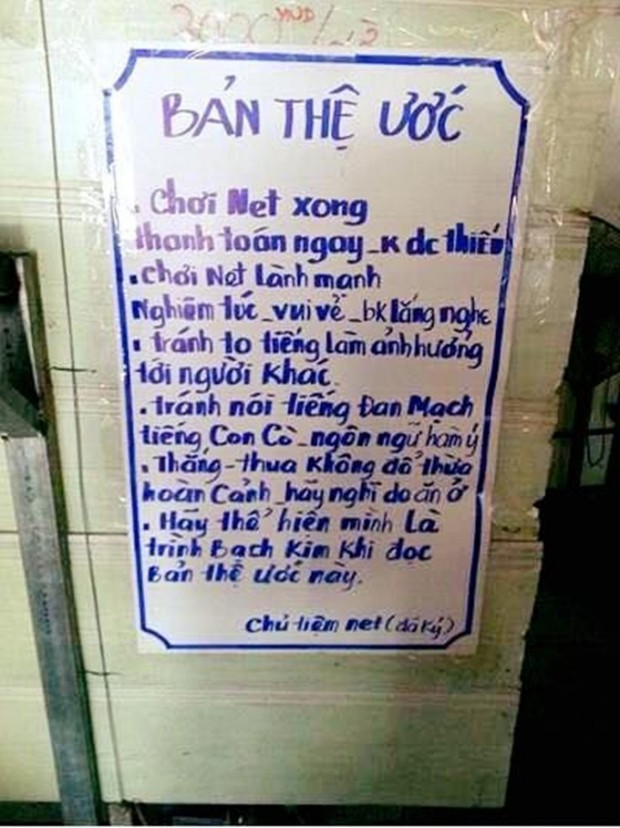 3000 VND
BẢN THỆ ƯỚC
. Chơi Net xong
thanh toán ngay_K dc thiếu
. chơi Net Lành mạnh
Nghiêm túc_vui vẻ_bk lắng nghe
. tránh to tiếng làm ảnh hưởng
tới người khác.
. tránh nói tiếng Đan Mạch
tiếng Con Cò_ngôn ngữ hàm ý
. Thắng-thua không đổ thừa
hoàn Cảnh_hãy nghĩ do ăn ở
. Hãy thể hiện mình là
trình Bạch Kim khi đọc
Bản thệ ước này.
Chủ tiệm net (đã ký)